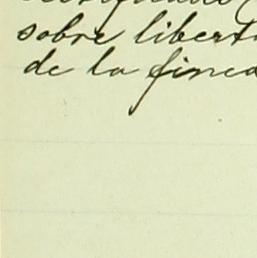 sobre libert
de la finca